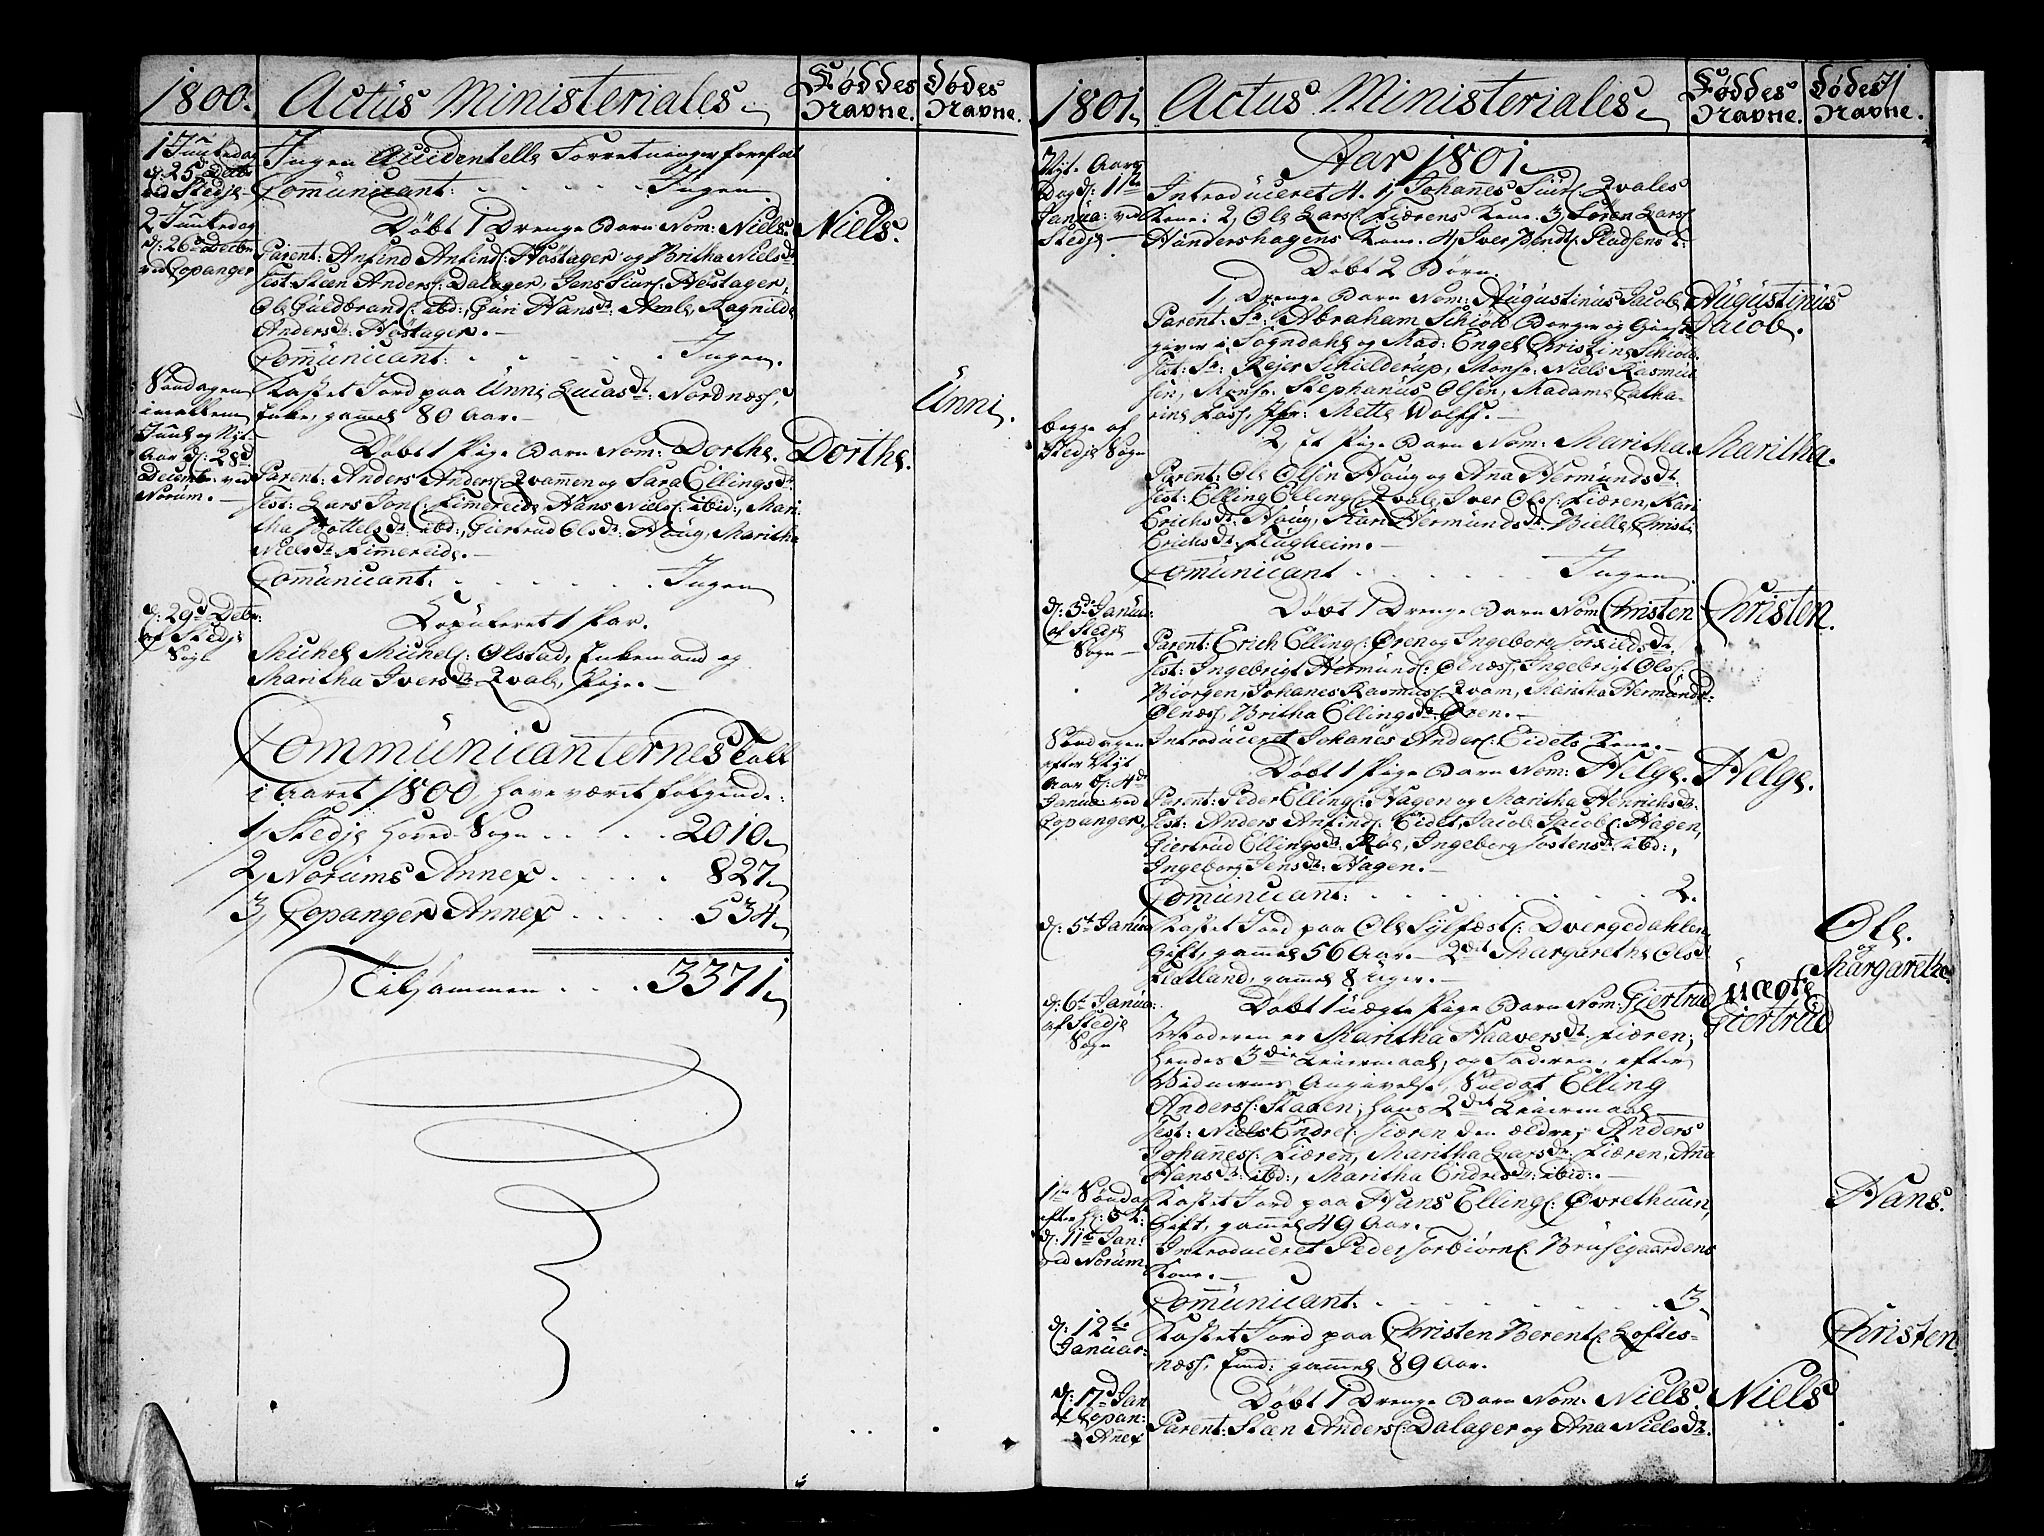 1800. Actus Ministeriales Føddes Navne. Dødes Navne.
1 Juuledag d: 25de Decbr ved Stedje
Ingen Accidentelle Forretninger forefalt
Communicant: . . . . . Ingen
2 Juuledag d: 26de Decbr ved Copanger
Døbt 1 Drenge Barn Nom: Niels. Niels.
Parent: Anfind Anfinds: Høstager og Britha Nielsdr
Test: Steen Anders: Dalager, Jens Siurs: Høstager,
Ole Guldbrands: ibid:, Guri Hansdr: Amle, Ragnilde
Andersdr: Høstager.
Communicant: . . . . . Ingen.
Søndagen imellem Juul og Nyt-Aar d: 28de Decembr ved Norum.
Kastet Jord paa Unni Lucasdr: Nordnæss, Unni.
Enke, gamel 80 Aar.
Døbt 1 Pige Barn Nom: Dorthe. Dorthe.
Parent: Anders Anders: Qvammen og Sara Ellingsdr
Test: Lars Jons: Fimereide, Hans Niels: ibid:, Mari-
tha Bottelsdr: ibid:, Giertrud Olsdr: Houg, Maritha
Nielsdr Fimmereide.
Communicant: . . . . . Ingen
d: 29de Decbr: af Stedje Sogn
Copuleret 1 Par.
Michel Michels: Ølstad, Enkemand og
Maritha Iversdr Qvale, Pige.
Communicanternes Tall
i Aaret 1800, have været følgende:
1, Stedje Hoved-Sogn . . . . . 2010
2, Norums Annex . . . . . 827
3, Copangers Annex . . . . 534
Tilsammen . . . 3371
1801. Actus Ministeriales Føddes Navne. Dødes Navne. 71
Aar 1801.
Nyt-Aars Dag d: 1ste Janua: ved Stedje
Introduceret 4. 1, Johannes Siurs: Qvales
Kone: 2, Ole Lars: Fiærens Kone. 3, Søren Lars:
Hundershagens Kone. 4, Iver Bendts: Pladsens K:
Døbt 2 Børn.
1, Drenge Barn Nom: Augustinus Jacob Augustinus
Parent: Sr: Abraham Schiøtt Borger og Giest- Jacob.
giver i Sogndahl og Mad: Engel Christine Schiøtt
Test: Sr: Rejer Schielderup, Monsr: Niels Rasmu
sen, Monsr: Stephanus Olsen, Madame Catha-
rine Fass, Jfr: Mette Wolff.
begge af Stedje Sogn
2, Et Pige Barn Nom: Maritha. Maritha.
Parent: Ole Olsen Houg og Ana Hermundsdr
Test: Elling Ellings: Qvale, Iver Ols: Fiæren, Kari
Erichsdr: Houg, Kari Hermundsdr: Bielle, Christi
Erichsdr: Flugheim.
Communicant . . . . . Ingen.
d: 3de Janua: af Stedje Sogn
Døbt 1 Drenge Barn Nom: Christen Christen.
Parent: Erich Ellings: Øren og Ingeborg Torkildsdr.
Test: Ingebrigt Hermunds: Ølnæss, Ingebrigt Ols:
Biørgen, Johanes Rasmus: Qvam, Maritha Hermundsdr:
Ølnæss, Britha Ellingsdr: Øren.
Søndagen efter Nyt Aar d: 4de Janua: ved Copanger
Introduceret Johanes Anders: Eidets Kone.
Døbt 1 Pige Barn Nom: Helge. Helge.
Parent: Peder Ellings: Hagen og Maritha Henrichsdr.
Test: Anders Anfinds: Eidet, Jacob Jacobs: Hagen,
Giertrud Ellingsdr: Roe, Ingeborg Tostensdr: ibid:,
Ingeborg Jensdr: Hagen.
Communicant: . . . . . 2.
d: 5te Janua
Kastet Jord paa Ole Sylfæst: Dvergedahlen Ole.
Gift, gammel 56 Aar. 2det Margarethe Olsdr og Margarethe.
Flatland gammel 8 Uger.
d: 6te Janua: af Stedje Sogn
Døbt 1 uægte Pige Barn Nom: Giertrud uægte Giertrud
Moderen er Maritha Haaversdr: Fiæren;
hendes 3die Leiermaal, og Faderen, efter
Vidnernes Angivelse, Soldat Elling
Anders: Staben; hans 2det Leiermaal
Test: Niels Endres: Fiæren den ældre, Anders
Johanes: Fiæren, Maritha Larsdr: Fiæren, Ana
Hansdr: ibid:, Maritha Endresdr: ibid:.
1ste Søndag efter Hel: 3 K: d: 11te Jan: ved Norum
Kastet Jord paa Hans Ellings: Øvrethuun, Hans.
Gift, gammel 49 Aar.
Introduceret Peder Torbiørns: Brusegaardens
Kone.
Communicant: . . . . . 3.
d: 12te Januar:
Kastet Jord paa Christen Berents: Loftes- Christen.
næss, gammel 89 Aar.
d: 17de Jan af Copan: Anex
Døbt 1 Drenge Barn Nom: Niels. Niels
Parent: Steen Anders: Dalager og Ana Nielsdr.